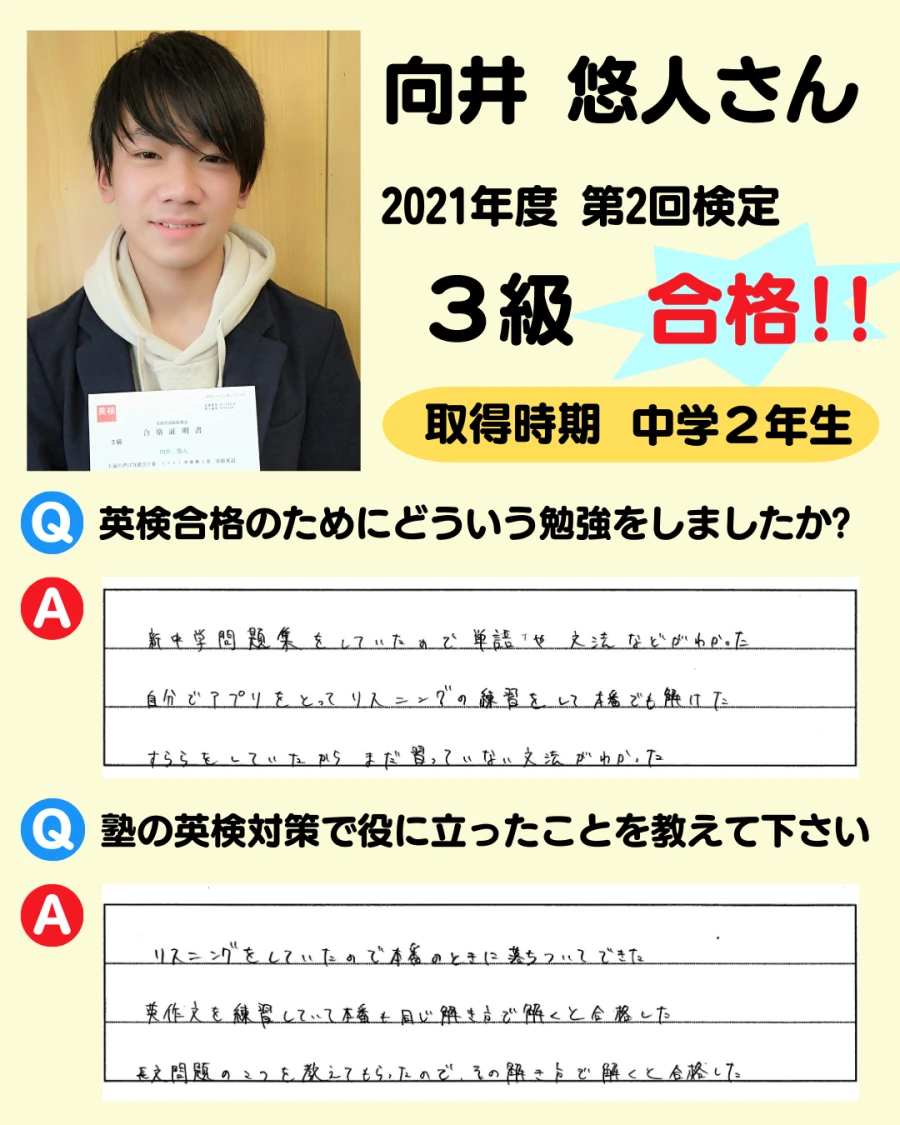 向井 悠人さん
2021年度 第2回検定
3級 合格!!
取得時期 中学2年生
英検
合格証明書
3級
向井 悠人
Q 英検合格のためにどういう勉強をしましたか?
A
新中学問題集をしていたので単語や文法などがわかった
自分でアプリをとってリスニングの練習をして本番でも解けた
すららをしていたからまだ習っていない文法がわかった
Q 塾の英検対策で役に立ったことを教えて下さい
A
リスニングをしていたので本番のときに落ちついてできた
英作文を練習していて本番も同じ解き方で解くと合格した
長文問題のコツを教えてもらったので、その解き方で解くと合格した